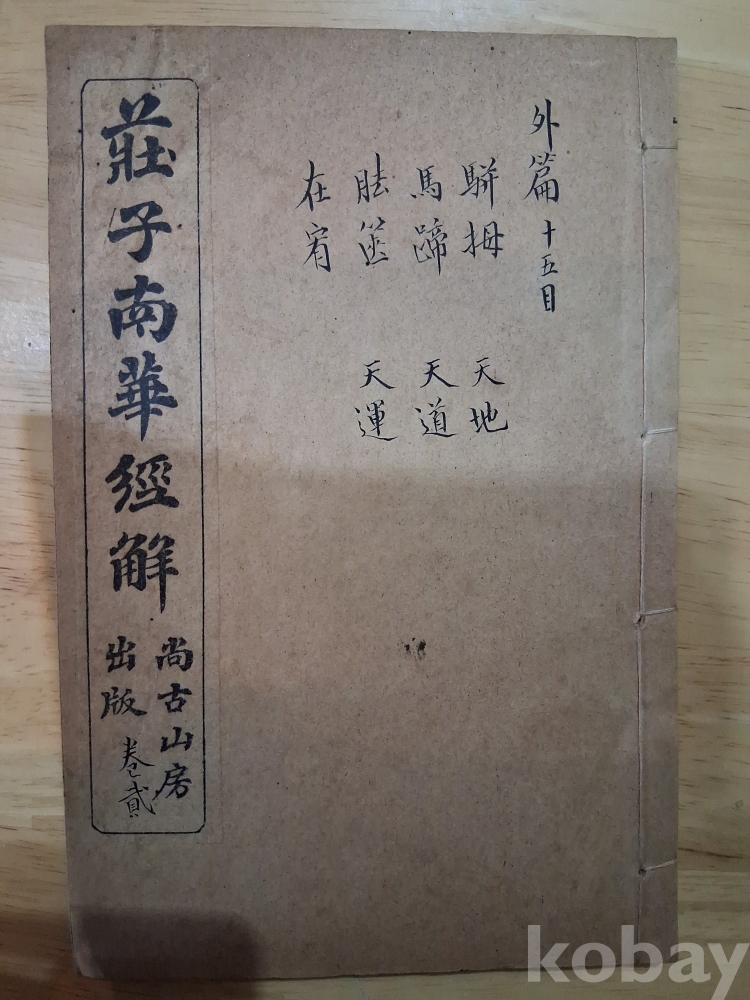 外篇 十五目
駢拇
馬蹄
胠篋
在宥
天地
天道
天運
莊子南華經解
尚古山房
出版
卷貳
kobay